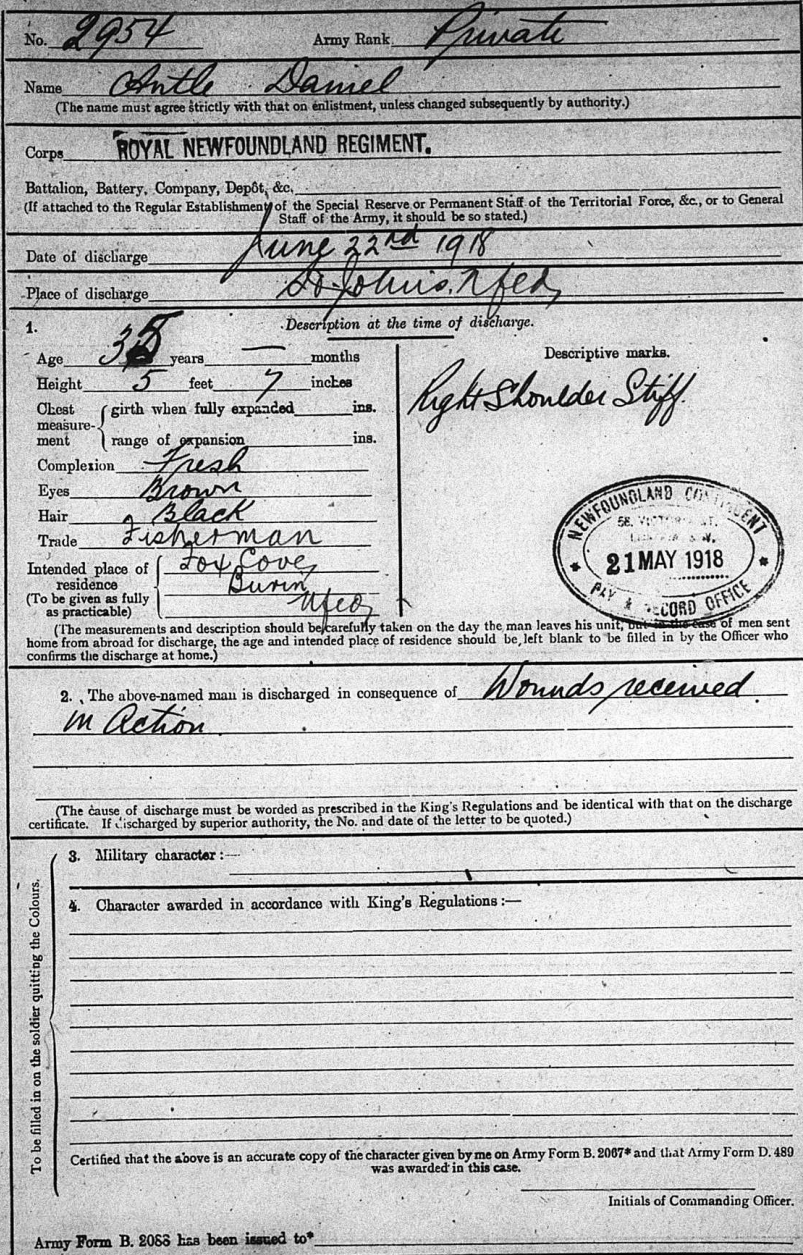 No. 2954 Army Rank Private
Name Antle Daniel
(The name must agree strictly with that on enlistment, unless changed subsequently by authority.)
Corps ROYAL NEWFOUNDLAND REGIMENT.
Battalion, Battery, Company, Depôt, &c.
(If attached to the Regular Establishment of the Special Reserve or Permanent Staff of the Territorial Force, &c., or to General
Staff of the Army, it should be so stated.)
Date of discharge June 22nd 1918
Place of discharge St. John's. Nfld,
1. Description at the time of discharge.
Age 35 years — months
Height 5 feet 7 inches
Chest measurement
girth when fully expanded ins.
range of expansion ins.
Complexion Fresh
Eyes Brown
Hair Black
Trade Fisherman
Intended place of residence
(To be given as fully as practicable)
Fox Cove,
Burin,
Nfld,
Descriptive marks.
Right Shoulder Stiff.
NEWFOUNDLAND CONTINGENT
58, VICTORIA ST.
21 MAY 1918
PAY & RECORD OFFICE
(The measurements and description should be carefully taken on the day the man leaves his unit, but in the case of men sent
home from abroad for discharge, the age and intended place of residence should be left blank to be filled in by the Officer who
confirms the discharge at home.)
2. The above-named man is discharged in consequence of Wounds received
in Action
(The cause of discharge must be worded as prescribed in the King's Regulations and be identical with that on the discharge
certificate. If discharged by superior authority, the No. and date of the letter to be quoted.)
To be filled in on the soldier quitting the Colours.
3. Military character :—
4. Character awarded in accordance with King's Regulations :—
Certified that the above is an accurate copy of the character given by me on Army Form B. 2067* and that Army Form D. 489
was awarded in this case.
Initials of Commanding Officer.
Army Form B. 2088 has been issued to*